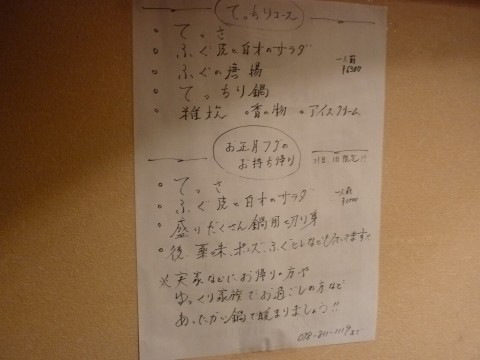 てっちりコース
◦ てっさ
◦ ふぐ皮と白才のサラダ
◦ ふぐの唐揚 一人前
◦ てっちり鍋
◦ 雑炊 ◦香の物 ◦アイスクリーム
お正月フグの
お持ち帰り
◦ てっさ
◦ ふぐ皮と白才のサラダ 一人前
◦ 盛りだくさん鍋用切り身
◦ 後、薬味、ポンズ、ふぐヒレなども
※ 実家などにお帰りの方や
ゆっくり家族でお過ごしの方など
あったか〜い鍋で暖まりましょう!!